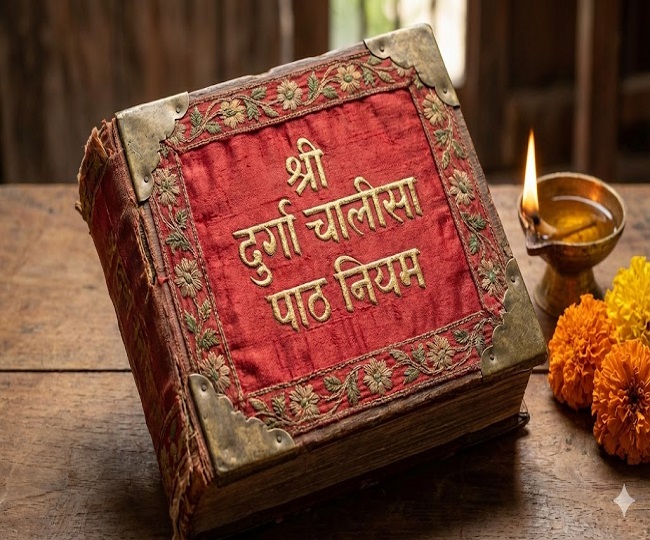 श्री
दुर्गा चालीसा
पाठ नियम